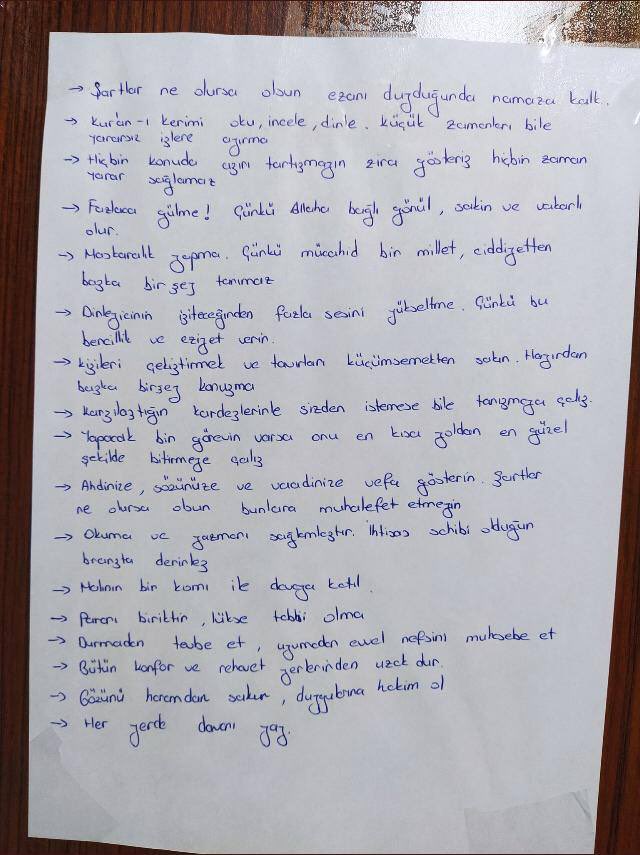 → Şartlar ne olursa olsun ezanı duyduğunda namaza kalk.
→ Kur'an-ı kerimi oku, incele, dinle. küçük zamanları bile
yararsız işlere ayırma
→ Hiçbir konuda aşırı tartışmayın zira gösteriş hiçbir zaman
yarar sağlamaz
→ Fazlaca gülme! Çünkü Allaha bağlı gönül, sakin ve vakarlı
olur.
→ Maskaralık yapma. Çünkü mücahid bir millet, ciddiyetten
başka bir şey tanımaz
→ Dinleyicinin işiteceğinden fazla sesini yükseltme. Çünkü bu
bencillik ve eziyet verir.
→ kişileri çekiştirmek ve tavırları küçümsemekten sakın. Hayırdan
başka birşey konuşma
→ karşılaştığın kardeşlerinle sizden istemese bile tanışmaya çalış.
→ Yapacak bir görevin varsa onu en kısa yoldan en güzel
şekilde bitirmeye çalış
→ Ahdinize, sözünüze ve vaadinize vefa gösterin. Şartlar
ne olursa olsun bunlara muhalefet etmeyin
→ Okuma ve yazmanı sağlamlaştır. İhtisas sahibi olduğun
branşta derinleş
→ Malının bir kısmı ile davaya katıl.
→ Paranı biriktir, lükse tabi olma
→ Durmadan tevbe et, uyumadan evvel nefsini muhasebe et
→ Bütün konfor ve rehavet yerlerinden uzak dur.
→ Gözünü haramdan sakın, duygularına hakim ol
→ Her yerde davanı yay.